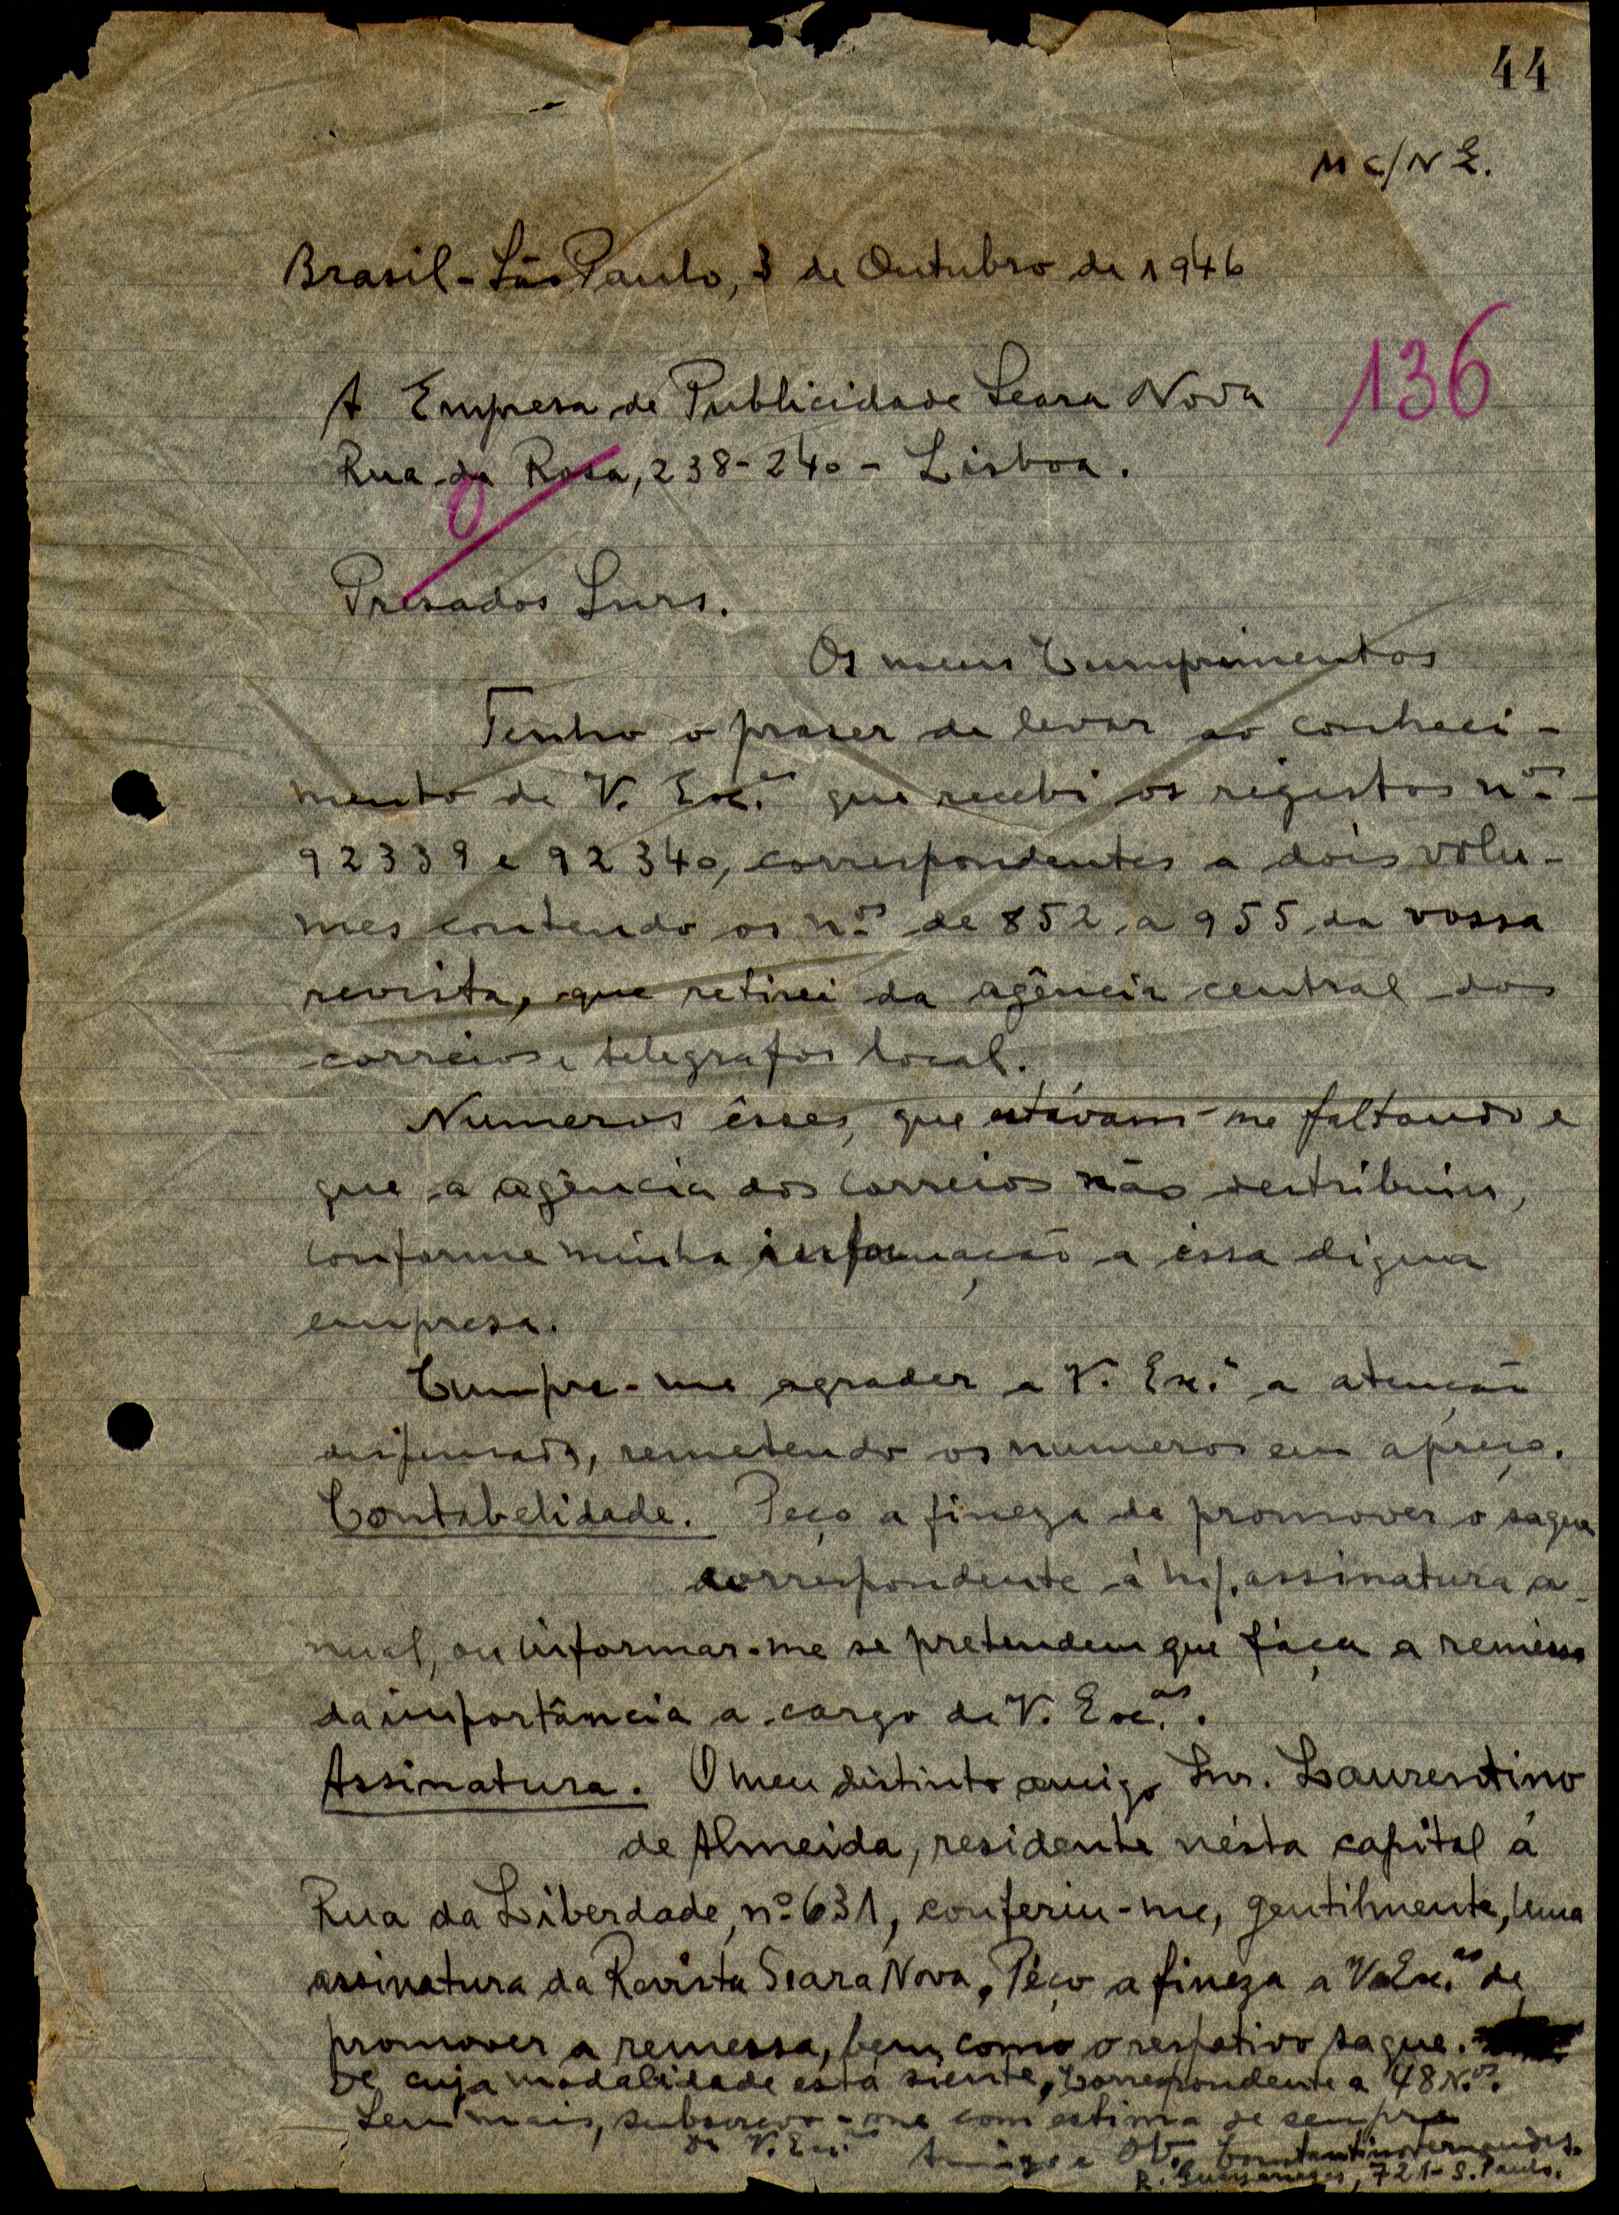 44
M C/N E.
Brasil - São Paulo, 3 de Outubro de 1946
136
A Empresa de Publicidade Seara Nova
Rua da Rosa, 238-240 - Lisboa.
Presados Snrs.
Os meus Cumprimentos
Tenho o praser de levar ao conheci-
mento de V. Exc.as que recebi os registos n.os
92339 e 92340, correspondentes a dois volu-
mes contendo os n.os de 852 a 955 da vossa
revista, que retirei da agência central dos
correios e telegrafos local.
Numeros êsses, que estávam-me faltando e
que a agência dos correios não destribuiu,
conforme minha informação a éssa digna
empresa.
Cumpre-me agrader a V. Ex.as a atenção
dispensada, remetendo os numeros em apreço.
Contabelidade. Peço a fineza de promover o saque
correspondente á m/. assinatura a-
nual, ou informar-me se pretendem que fáça a remessa
da importância a cargo de V. Exc.as.
Assinatura. O meu distinto amigo Snr. Laurentino
de Almeida, residente nésta capital á
Rua da Liberdade, nº 631, conferiu-me, gentilmente, uma
assinatura da Revista Seara Nova. Péço a fineza a V. Ex.as de
promover a remessa, bem como o respetivo saque.
de cuja modalidade está siente, correspondente a 48 N.os.
Sem mais, subscrevo-me com estima de sempre
De V. Ex.as Amigo e Ob. Constantino Fernandes.
R. Guaianazes, 721 - S. Paulo.